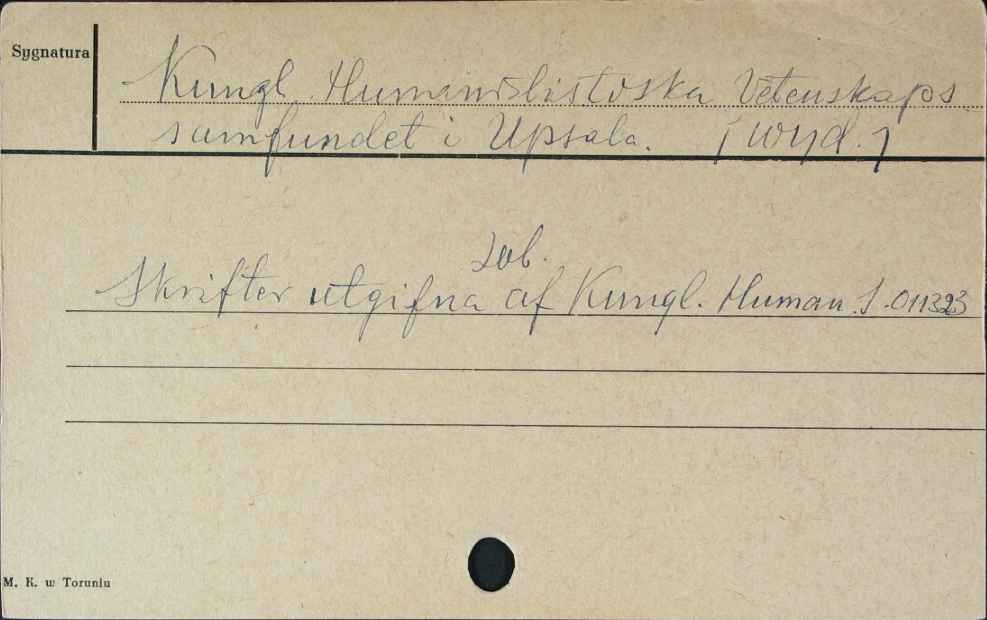 Sygnatura
Kungl. Humanislistiska Vetenskaps
samfundet i Upsala. [wyd.]
zob.
Skrifter utgifna af Kungl. Human. S. 011323
M. K. w Toruniu